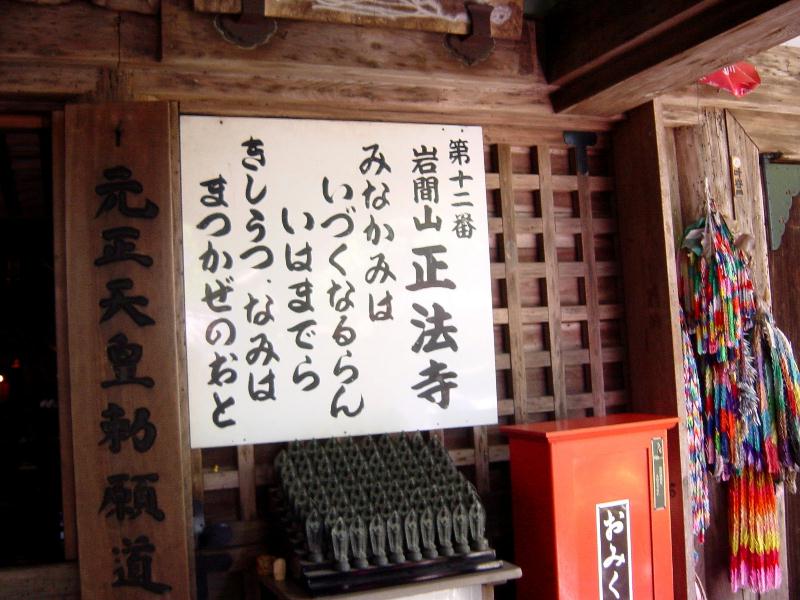 第十二番
岩間山 正法寺
みなかみは
いづくなるらん
いはまでら
きしうつ なみは
まつかぜのおと
元正天皇勅願道
おみく